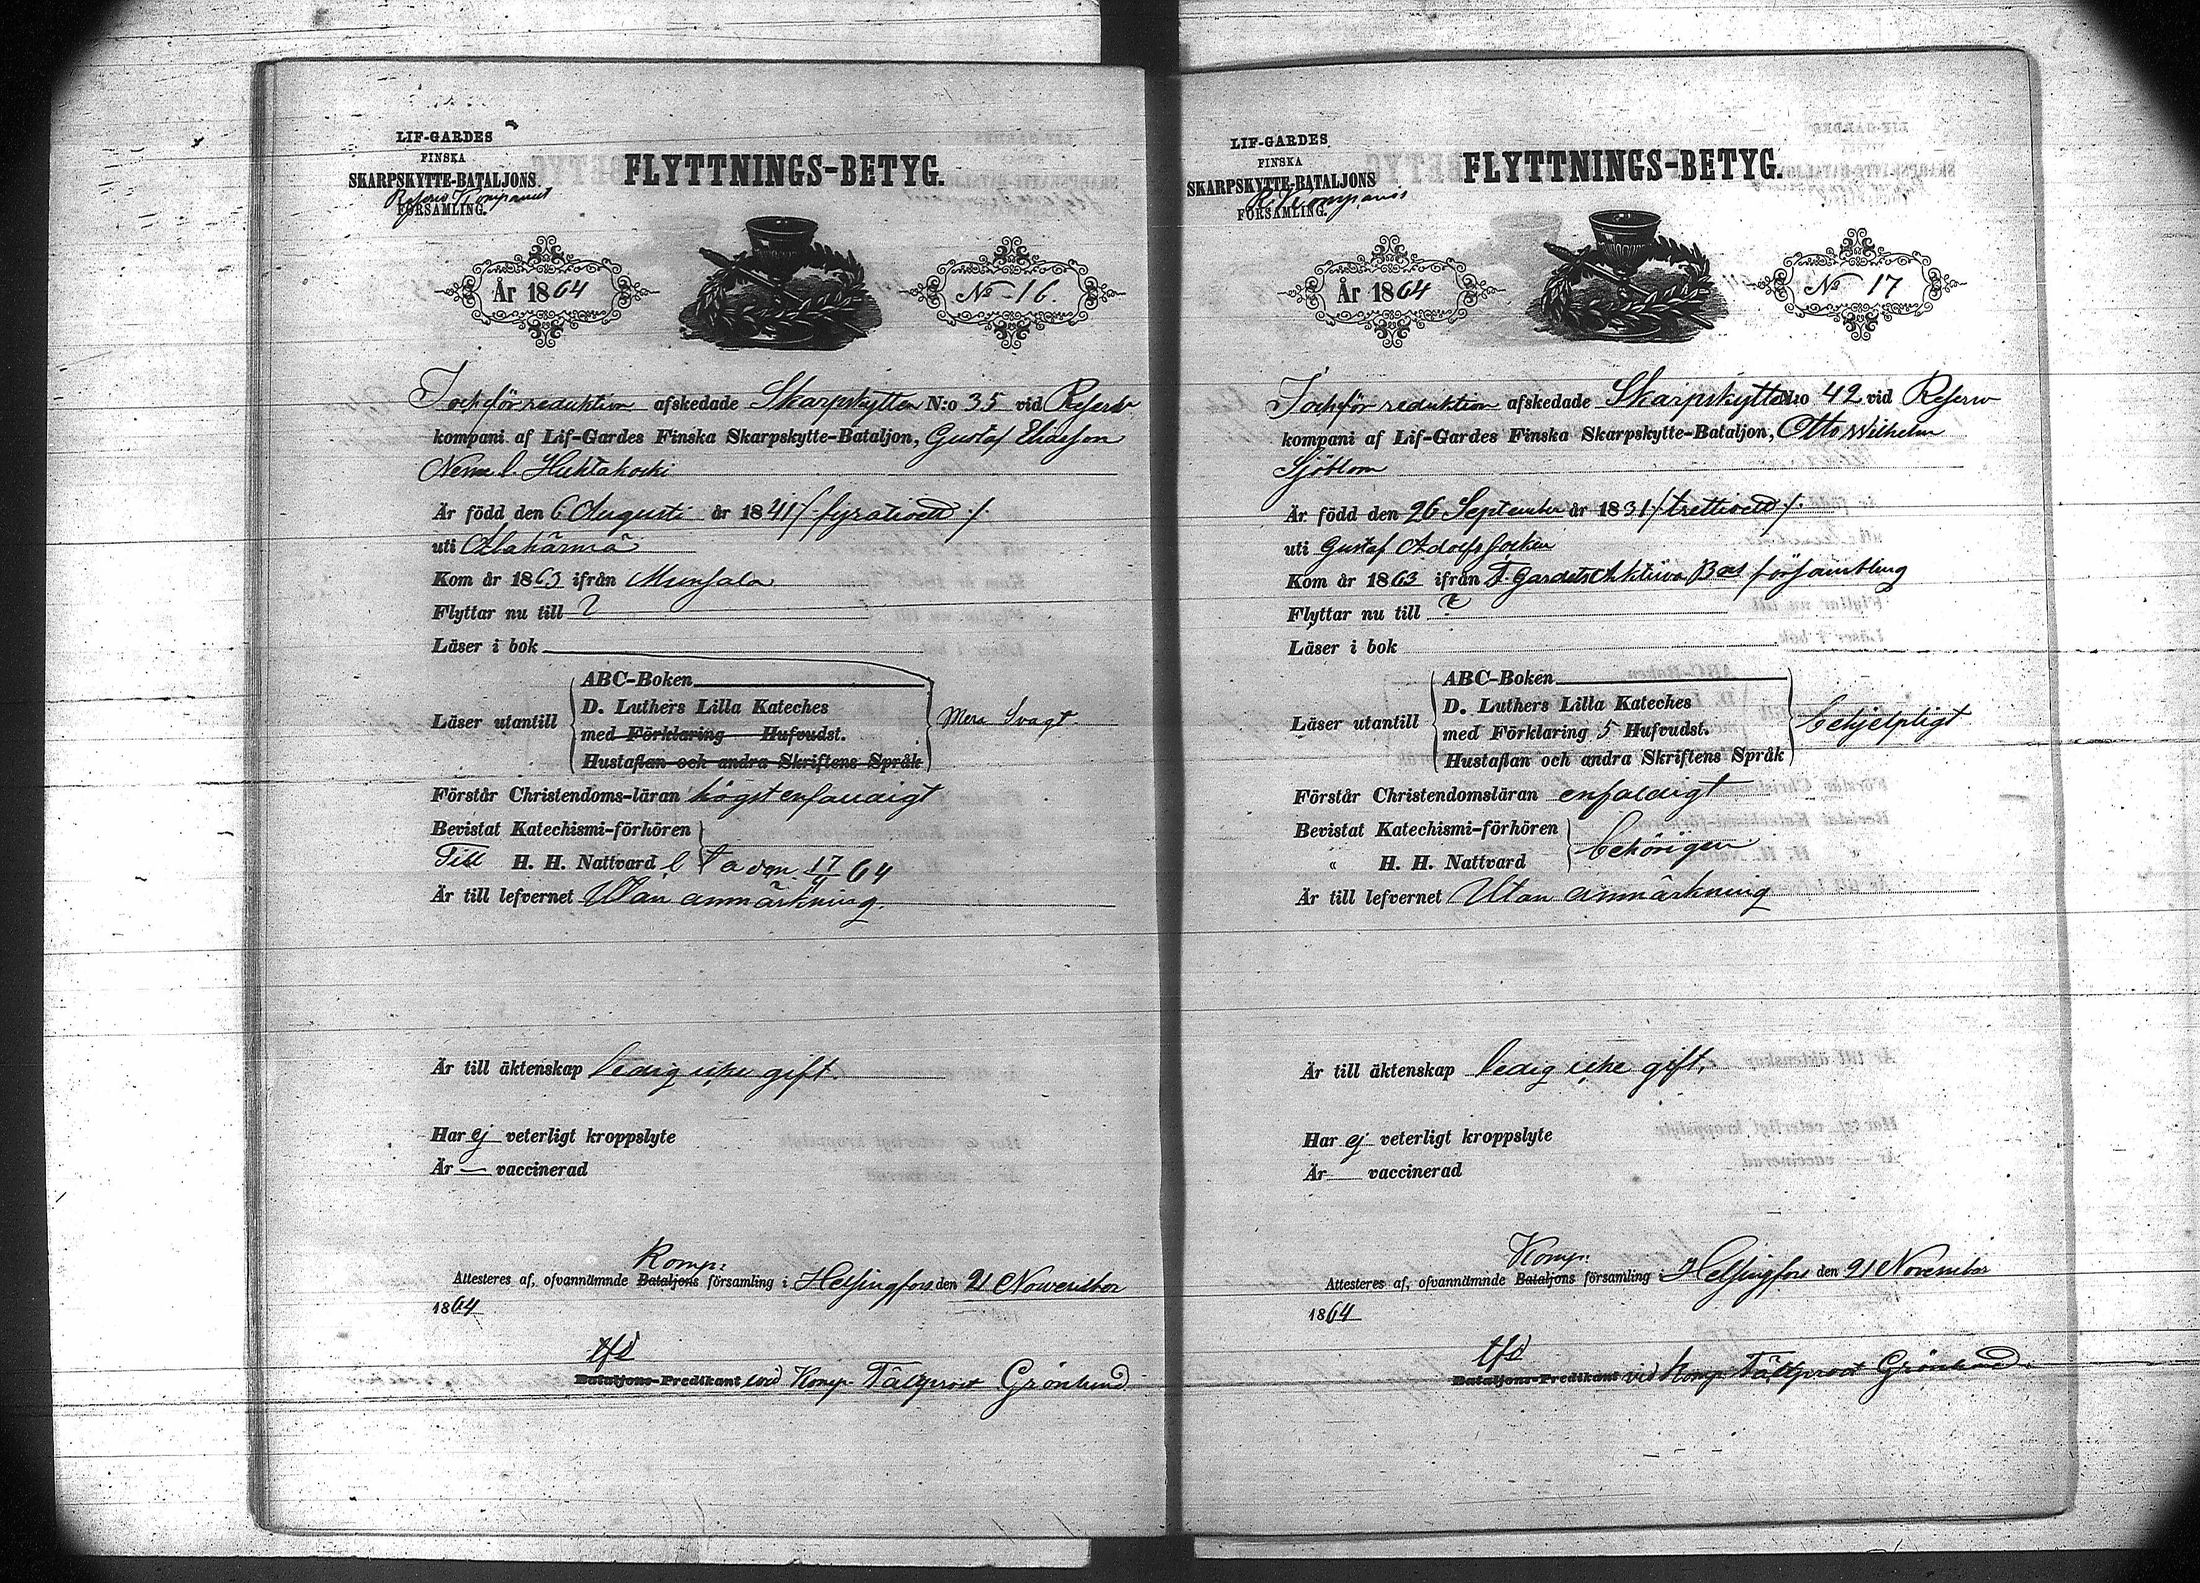 LIF-GARDES
FINSKA
SKARPSKYTTE-BATALJONS
Reserv Kompaniet
FÖRSAMLING.
FLYTTNINGS-BETYG.
År 1864
No 16.
för reduktion afskedade Skarpskytten N:o 35 vid Reserv
kompani af Lif-Gardes Finska Skarpskytte-Bataljon, Gustaf Eliasson
Huhtakoski
Är född den 6 Augusti år 1841 /: fyrationett :/
uti Alahärmä
Kom år 1863 ifrån Munsala
Flyttar nu till ?
Läser i bok
ABC-Boken
Läser utantill
D. Luthers Lilla Kateches
med Förklaring Hufvudst.
Hustaflan och andra Skriftens Språk
Mera Svagt
Förstår Christendoms-läran högst enfaldigt
Bevistat Katechismi-förhören
Till H. H. Nattvard den 17/9 64
Är till lefvernet Utan anmärkning.
Är till äktenskap ledig icke gift.
Har ej veterligt kroppslyte
Är — vaccinerad
Komp:
Attesteres af, ofvannämnde Bataljons församling i Helsingfors den 21 November
1864
tfd
Bataljons-Predikant vid Komp. Fältprost Grönlund
LIF-GARDES
FINSKA
SKARPSKYTTE-BATALJONS
R. Kompanis
FÖRSAMLING.
FLYTTNINGS-BETYG.
År 1864
No 17
för reduktion afskedade Skarpskytten N:o 42 vid Reserv
kompani af Lif-Gardes Finska Skarpskytte-Bataljon, Otto Wilhelm
Sjöblom
Är född den 26 September år 1831 /: trettioett :/
uti Gustaf Adolfs Socken
Kom år 1863 ifrån F. Gardets Aktiva Bat församling
Flyttar nu till ?
Läser i bok
ABC-Boken
Läser utantill
D. Luthers Lilla Kateches
med Förklaring 5 Hufvudst.
Hustaflan och andra Skriftens Språk
behjelpligt
Förstår Christendomsläran enfaldigt
Bevistat Katechismi-förhören
« H. H. Nattvard
behörigen
Är till lefvernet Utan anmärkning
Är till äktenskap ledig icke gift.
Har ej veterligt kroppslyte
Är — vaccinerad
Komp:
Attesteres af, ofvannämnde Bataljons församling i Helsingfors den 21 November
1864
tfd
Bataljons-Predikant vid Komp Fältprost Grönlund